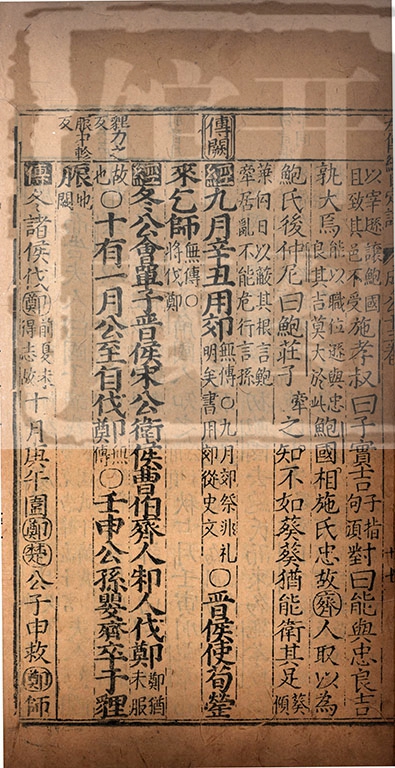 以宰遜讓鮑國且致其邑不受施孝叔曰子實吉子指句須對曰能與忠良吉
孰大焉能以職位遜與忠良其吉莫大於此鮑國相施氏忠故齊人取以為
鮑氏後仲尼曰鮑莊子牽之知不如葵葵猶能衛其足葵傾
葉向日以蔽其根言鮑牽居亂不能危行言孫
傳闕
經九月辛丑用郊無傳○九月郊祭非礼明矣書用郊從史文○晉侯使荀罃
來乞師無傳○將伐鄭
經冬公會單子晉侯宋公衛侯曹伯齊人邾人伐鄭鄭猶未服
貍力之反
故也○十有一月公至自伐鄭無傳○壬申公孫嬰齊卒于貍
脤市軫反
脤地闕
傳冬諸侯伐鄭前夏未得志故十月庚午圍鄭楚公子申救鄭師